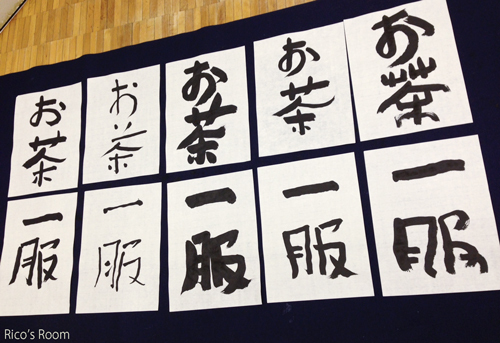 お茶 お茶 お茶 お茶 お茶
一服 一服 一服 一服 一服
Rico's Room